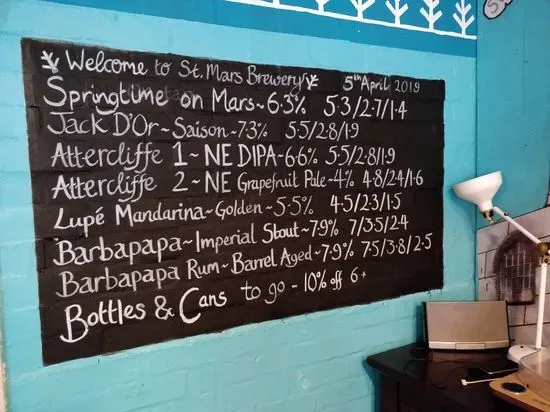 Welcome to St. Mars Brewery 5th April 2019
Springtime on Mars ~ 6.3% 5.3/2.7/1.4
Jack D'Or ~ Saison ~ 7.3% 5.5/2.8/1.9
Attercliffe 1 ~ NE DIPA ~ 6.6% 5.5/2.8/1.9
Attercliffe 2 ~ NE Grapefruit Pale ~ 4% 4.8/2.4/1.6
Lupé Mandarina ~ Golden ~ 5.5% 4.5/2.3/1.5
Barbapapa ~ Imperial Stout ~ 7.9% 7/3.5/2.4
Barbapapa Rum ~ Barrel Aged ~ 7.9% 7.5/3.8/2.5
Bottles & Cans to go - 10% off 6+